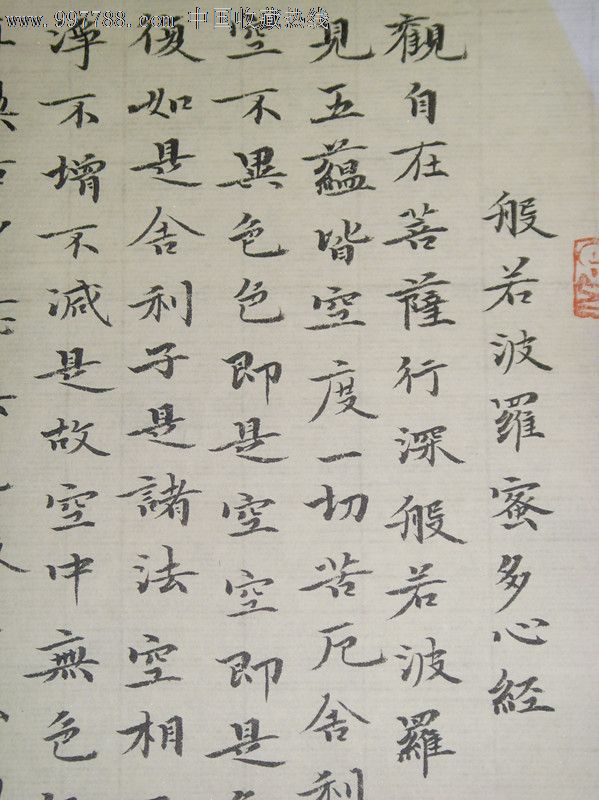 www.997788.com 中国收藏热线
般若波羅蜜多心経
觀自在菩薩行深般若波羅
見五蘊皆空度一切苦厄舎利
空不異色色即是空空即是
復如是舎利子是諸法空相
淨不增不減是故空中無色